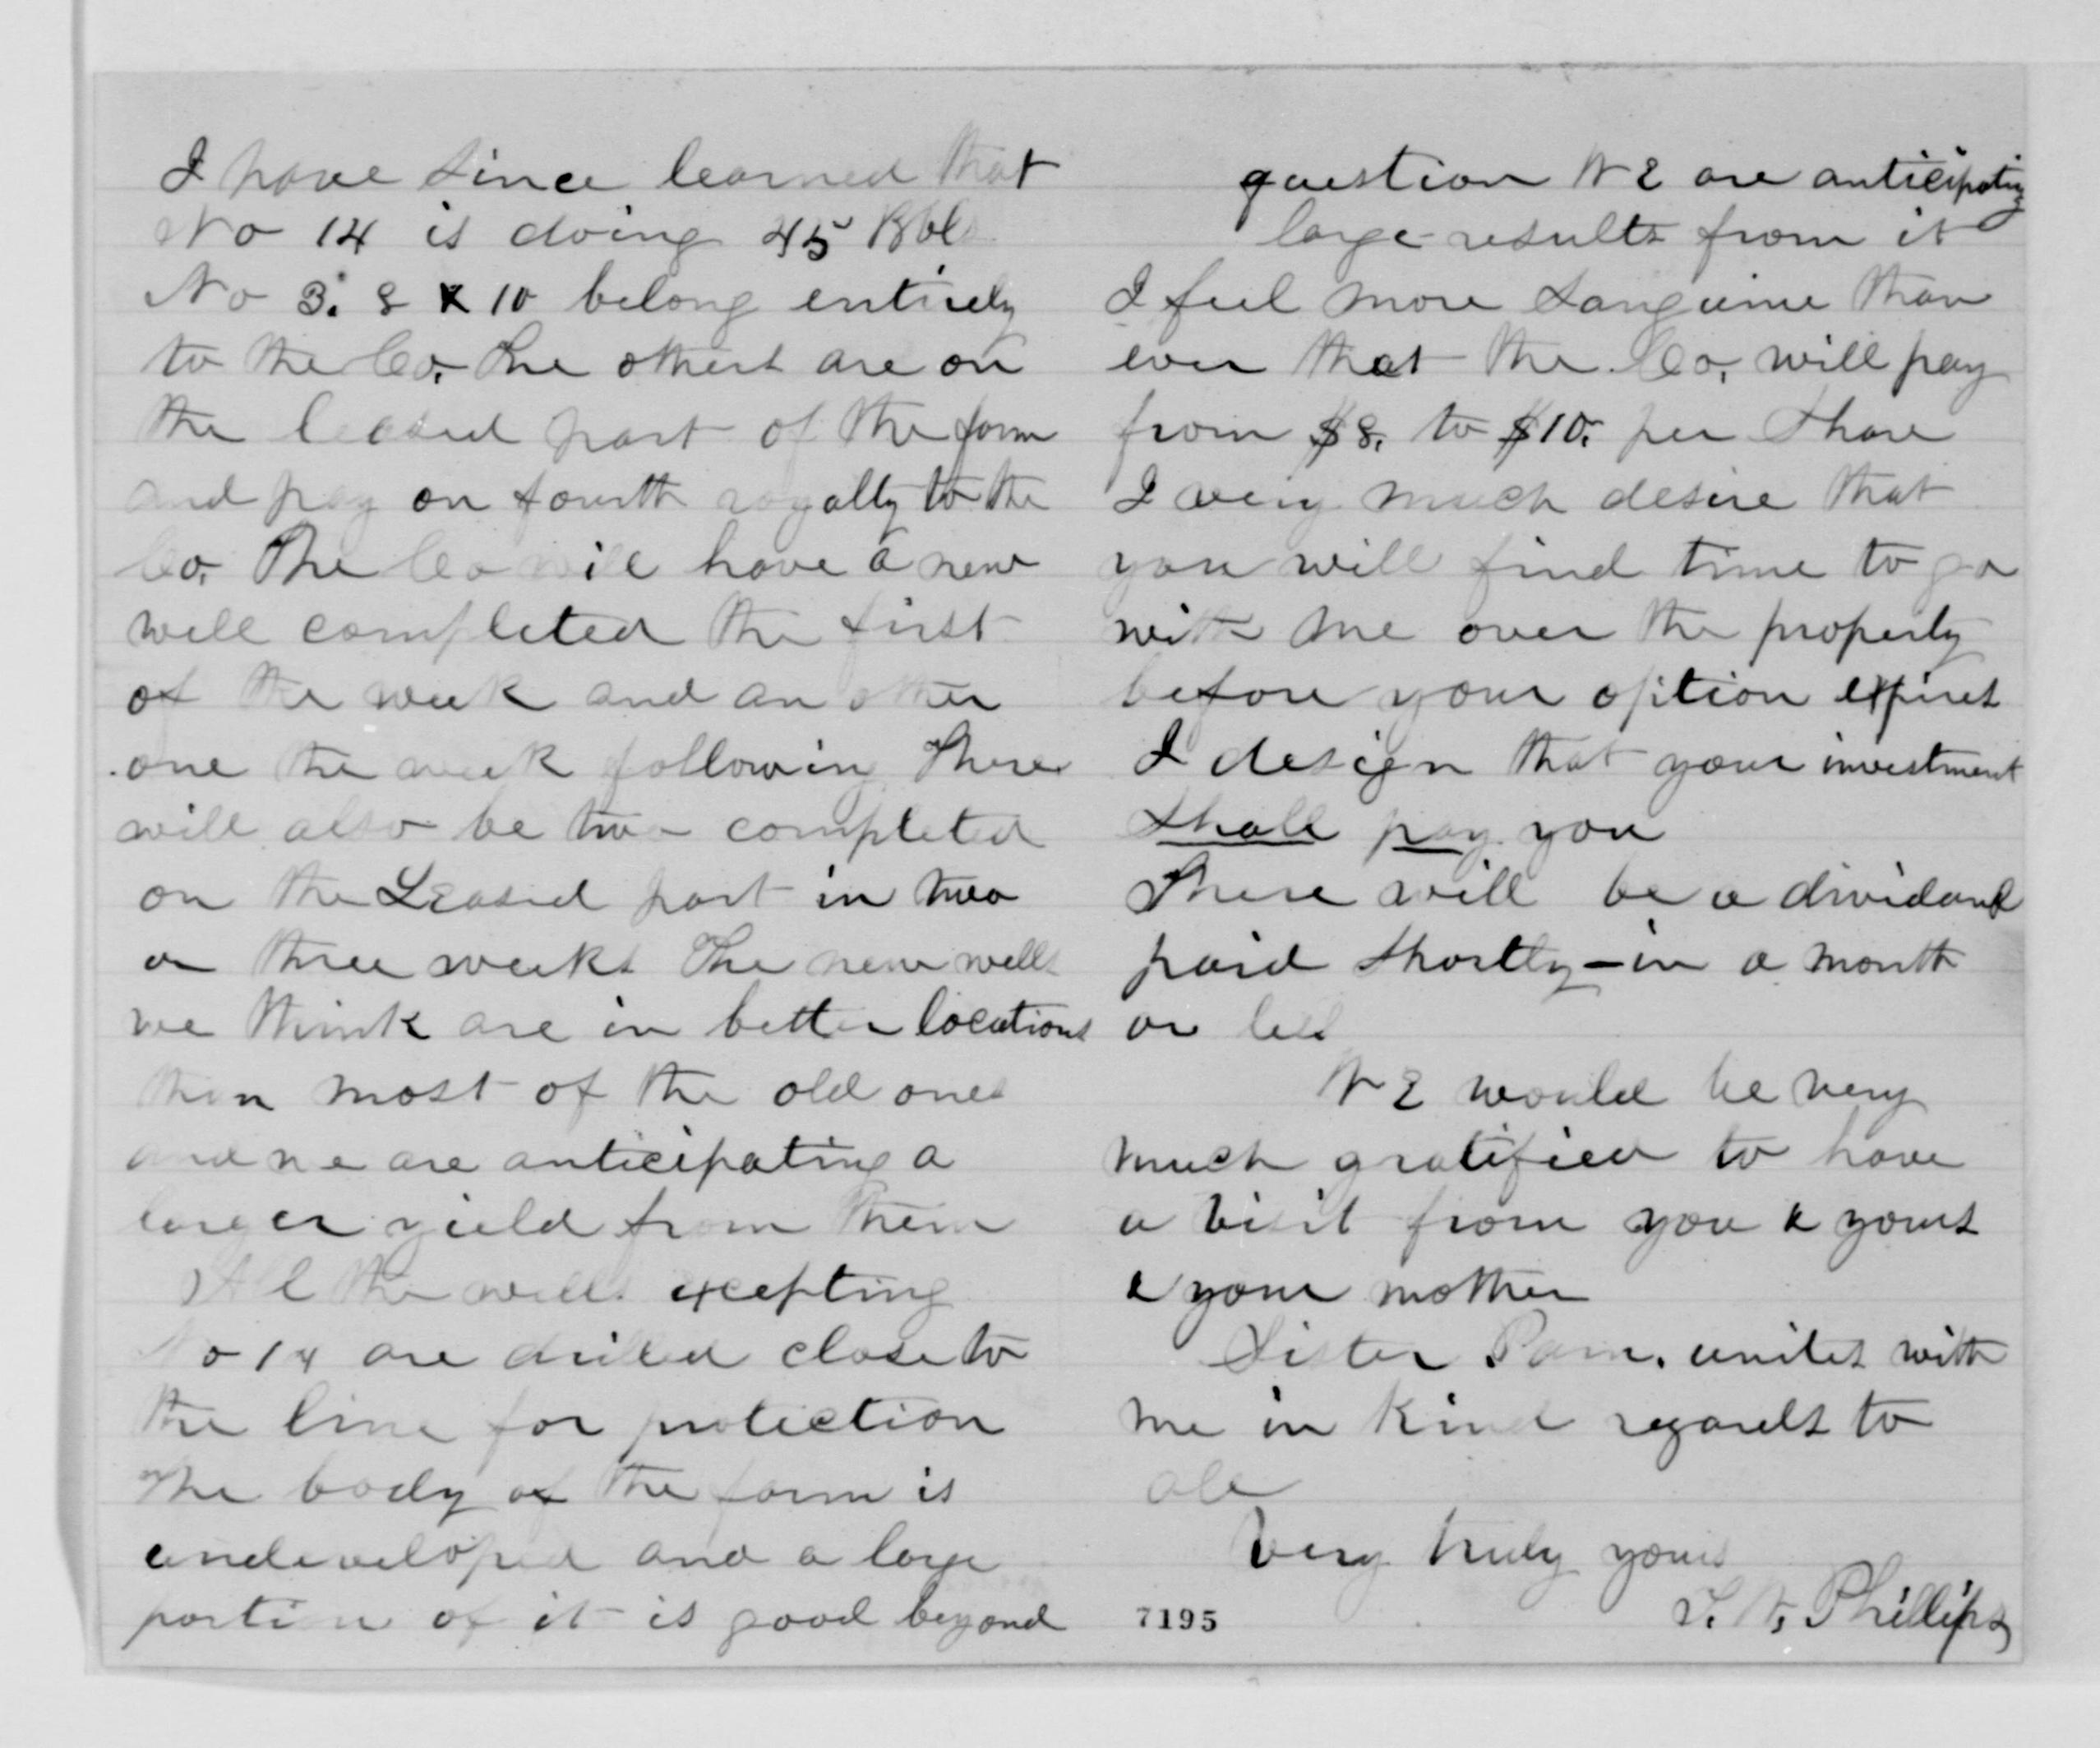 I have since learned that
No 14 is doing 45 Bbls
No 3. 8 & 10 belong entirely
to the Co. The others are on
the leased part of the farm
and pay on fourth royalty to the
Co. The Co will have a new
well completed the first
of the week and another
one the week following. There
will also be two completed
on the Leased part in two
or three weeks The new wells
we think are in better locations
than most of the old ones
and we are anticipating a
larger yield from them
All the wells excepting
No 14 are drilled close to
the line for protection
The body of the farm is
undeveloped and a large
portion of it is good beyond
question WE are anticipating
large results from it
I feel more sanguine than
ever that the Co. will pay
from $8. to $10. per share
I very much desire that
you will find time to go
with me over the property
before your option expires
I design that your investment
shall pay you
There will be a dividand
paid shortly – in a month
or less
WE would be very
much gratified to have
a visit from you & yours
& your mother
Sister Pam. unites with
me in kind regards to
all
Very truly yours
T. W. Phillips
7195